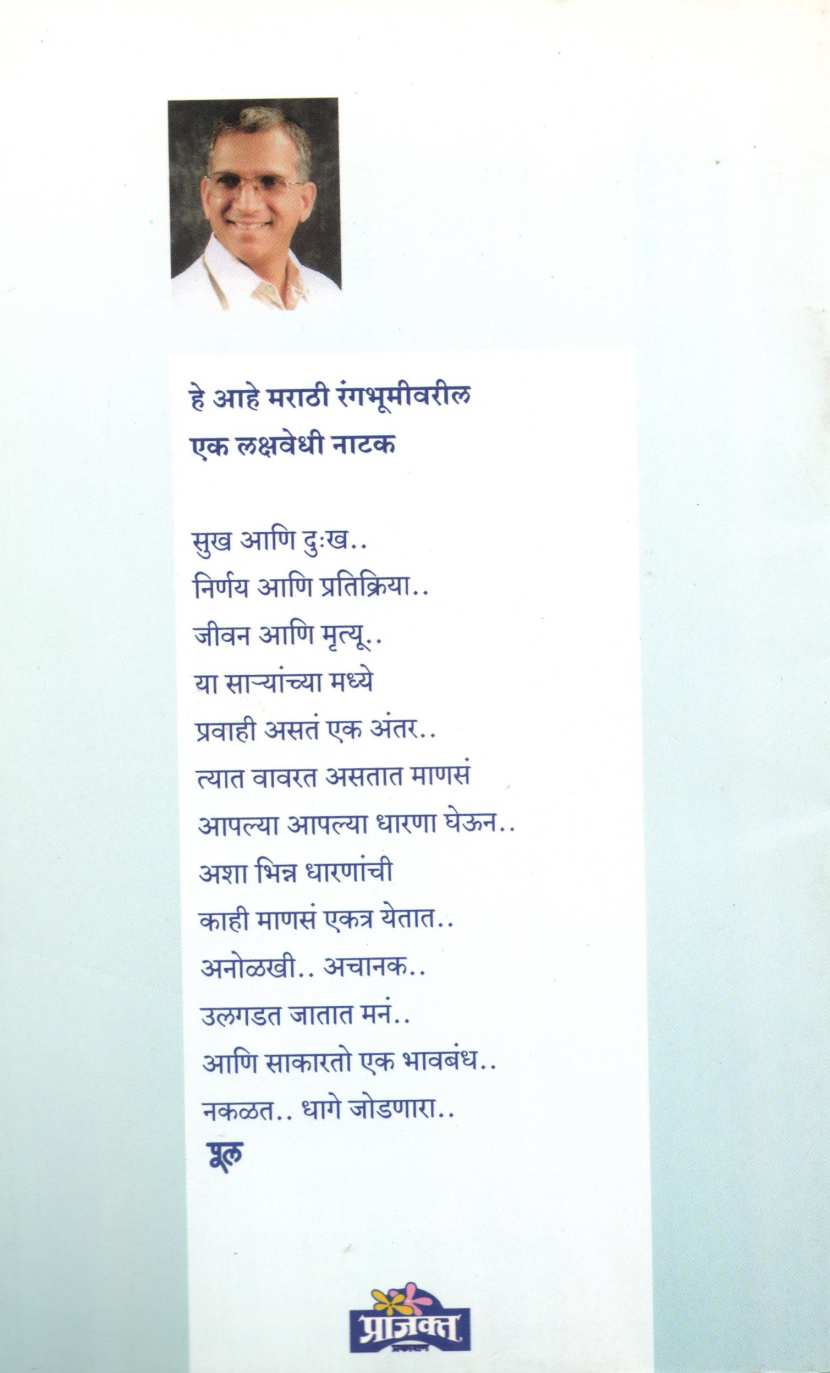 हे आहे मराठी रंगभूमीवरील
एक लक्षवेधी नाटक
सुख आणि दुःख..
निर्णय आणि प्रतिक्रिया..
जीवन आणि मृत्यू..
या साऱ्यांच्या मध्ये
प्रवाही असतं एक अंतर..
त्यात वावरत असतात माणसं
आपल्या आपल्या धारणा घेऊन..
अशा भिन्न धारणांची
काही माणसं एकत्र येतात..
अनोळखी.. अचानक..
उलगडत जातात मनं..
आणि साकारतो एक भावबंध..
नकळत.. धागे जोडणारा..
पूल
प्राजक्त
प्रकाशन